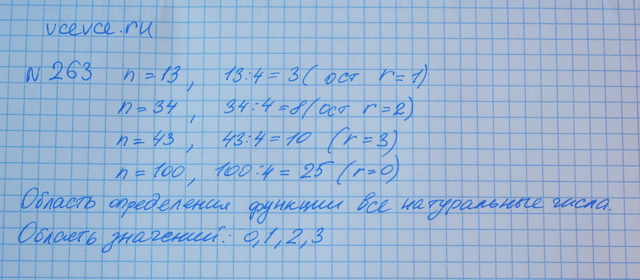 vcevce.ru
№ 263 n = 13, 13:4 = 3 ( ост r = 1)
n = 34, 34:4 = 8 (ост r = 2)
n = 43, 43:4 = 10 (r = 3)
n = 100, 100:4 = 25 (r = 0)
Область определения функции все натуральные числа.
Область значений: 0,1,2,3